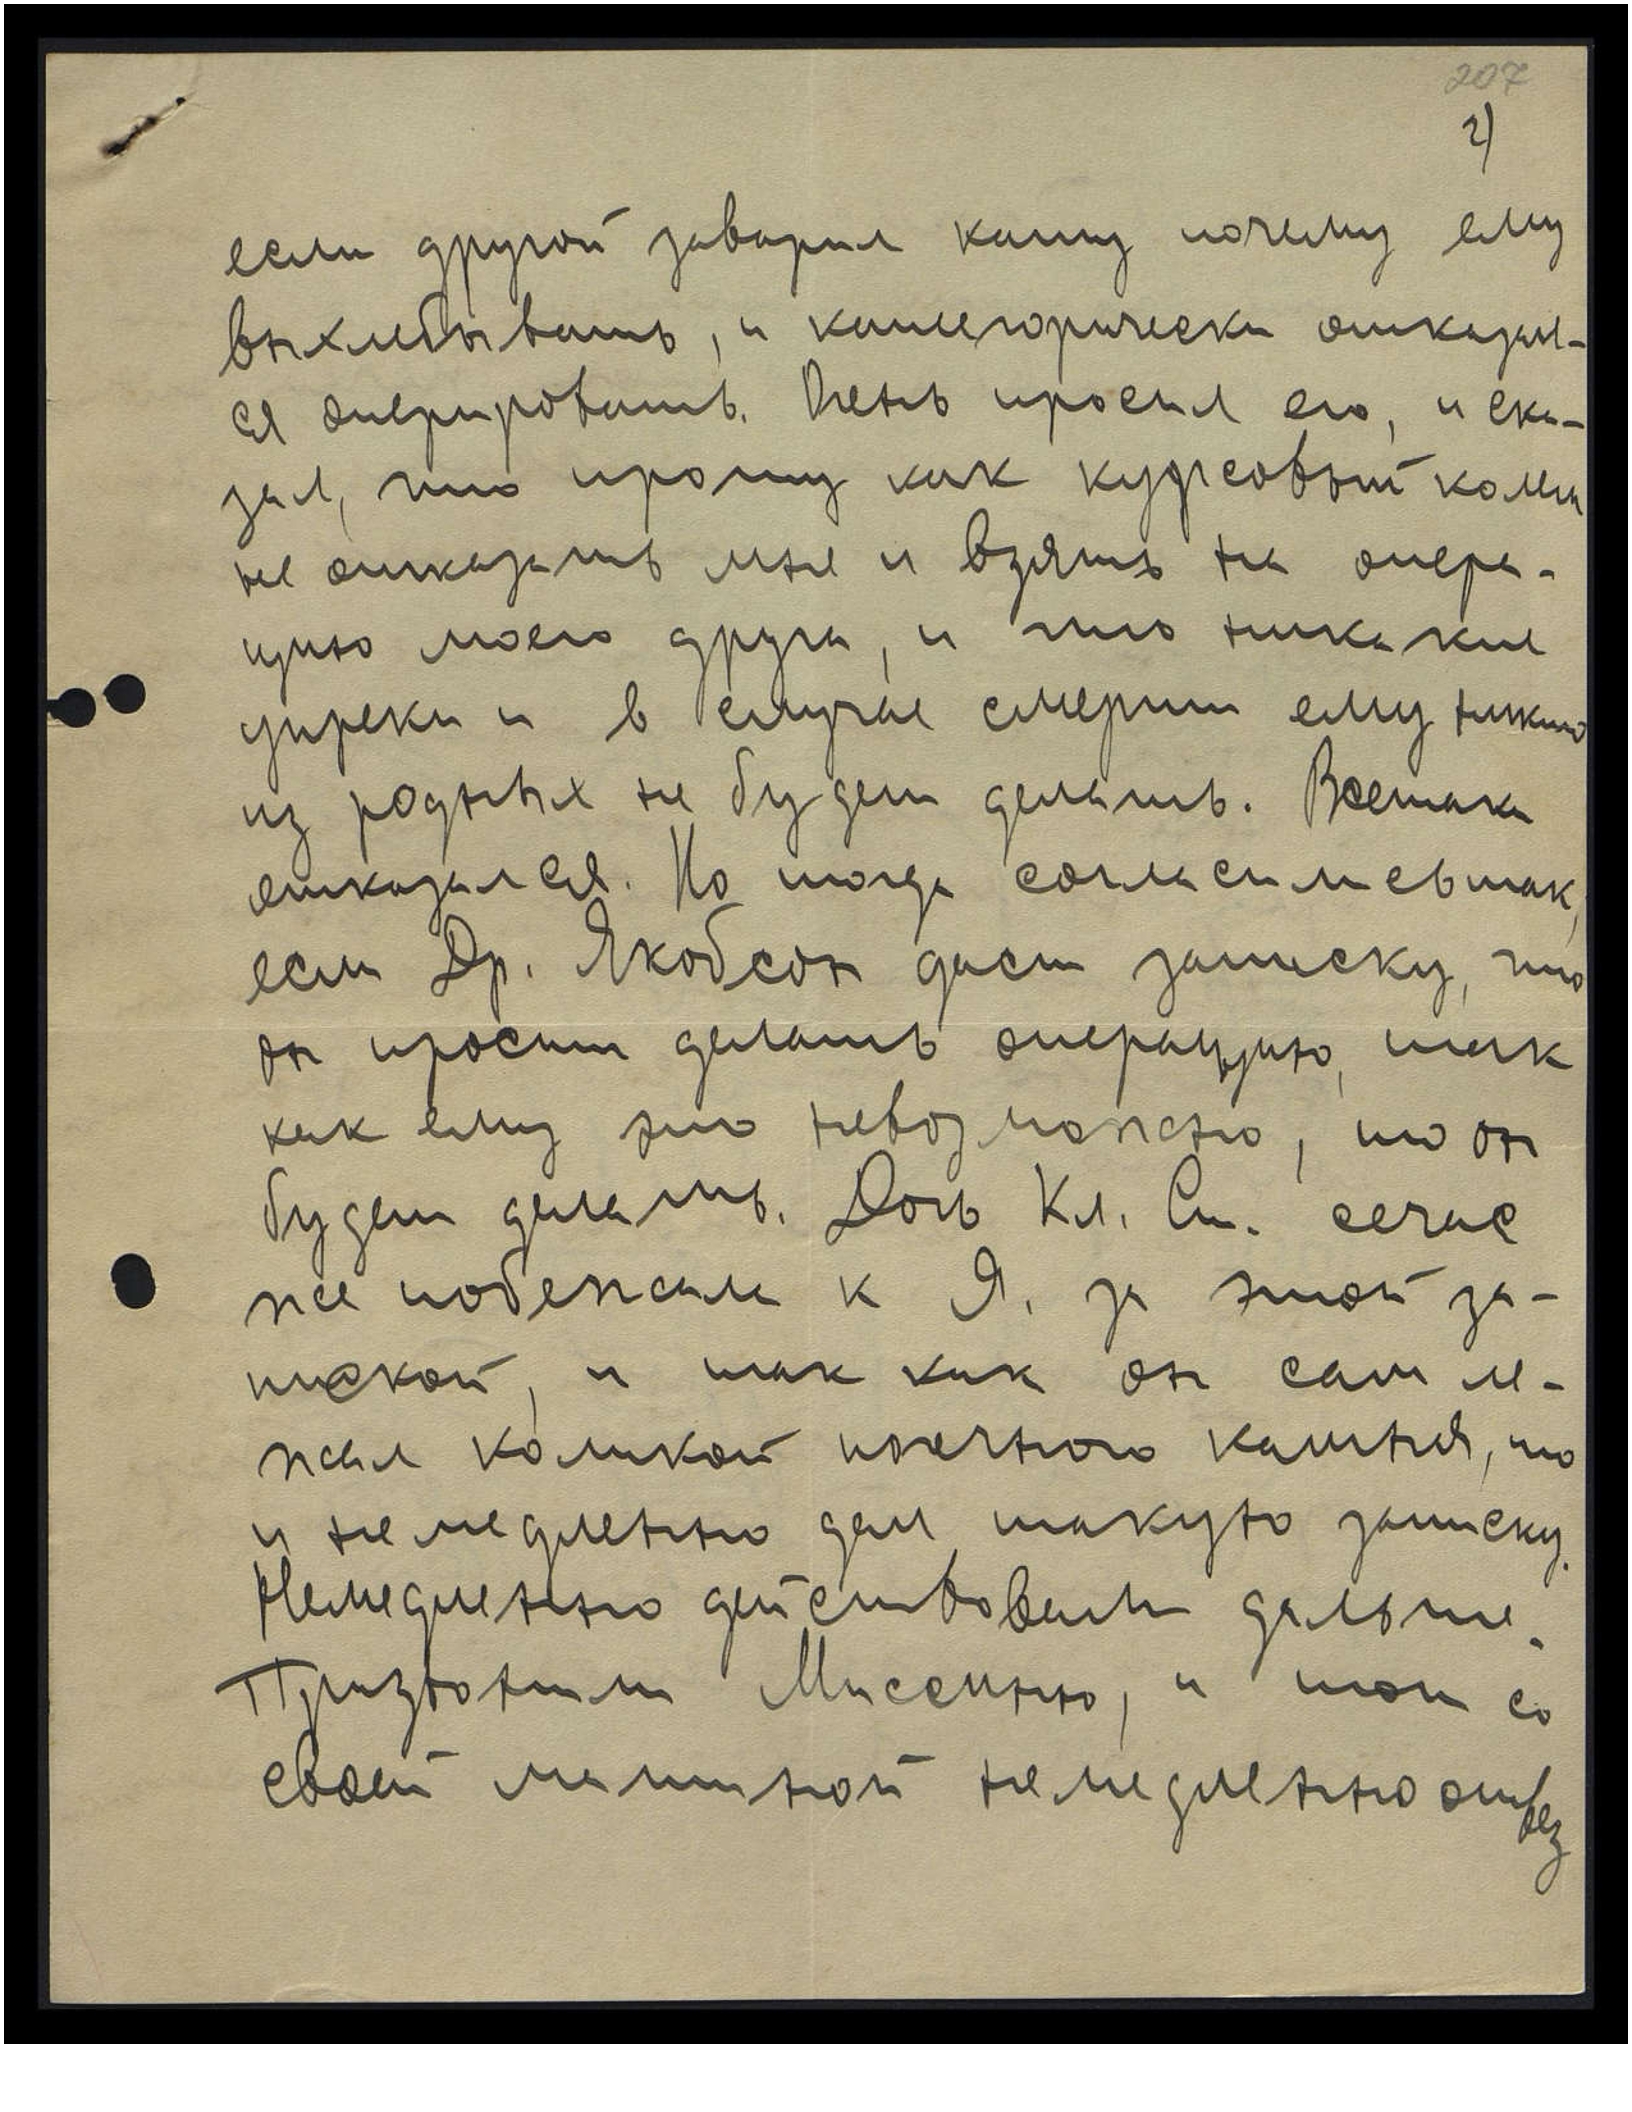 207
2)
если другой заварил кашу почему ему
выхлебывать, и категорически отказал-
ся оперировать. Очень просил его, и ска-
зал, что прошу как курсовый
не отказать мне и взять на опера-
цию моего друга, и что никакие
упреки и в случае смерти ему никто
из родных не будет делать. Всетаки
отказался. Но тогда согласились так,
если Др. Якобсон даст записку, что
он просит делать операцию, так
как ему это невозможно, то он
будет делать. Дочь Кл. Ст. сечас
же побежала к Я. за этой за-
пиской, и так как он сам ле-
жал коликой почечного камня, то
и немедленно дал такую записку.
Немедленно действовали дальше.
Призвонили Миссинно, и тот со
своей машиной немедленно отвез